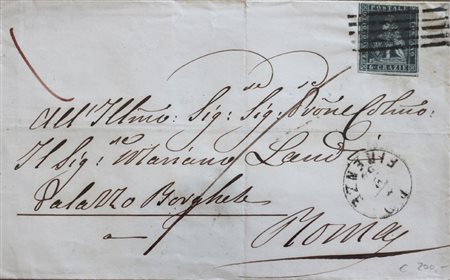 POSTALE
6 CRAZIE
All'Illmo: Sig:re Sig: Prône Colmo:
Il Sig:re Mariano Landi
Palazzo Borghese
a Roma
FIRENZE
€ 200,-